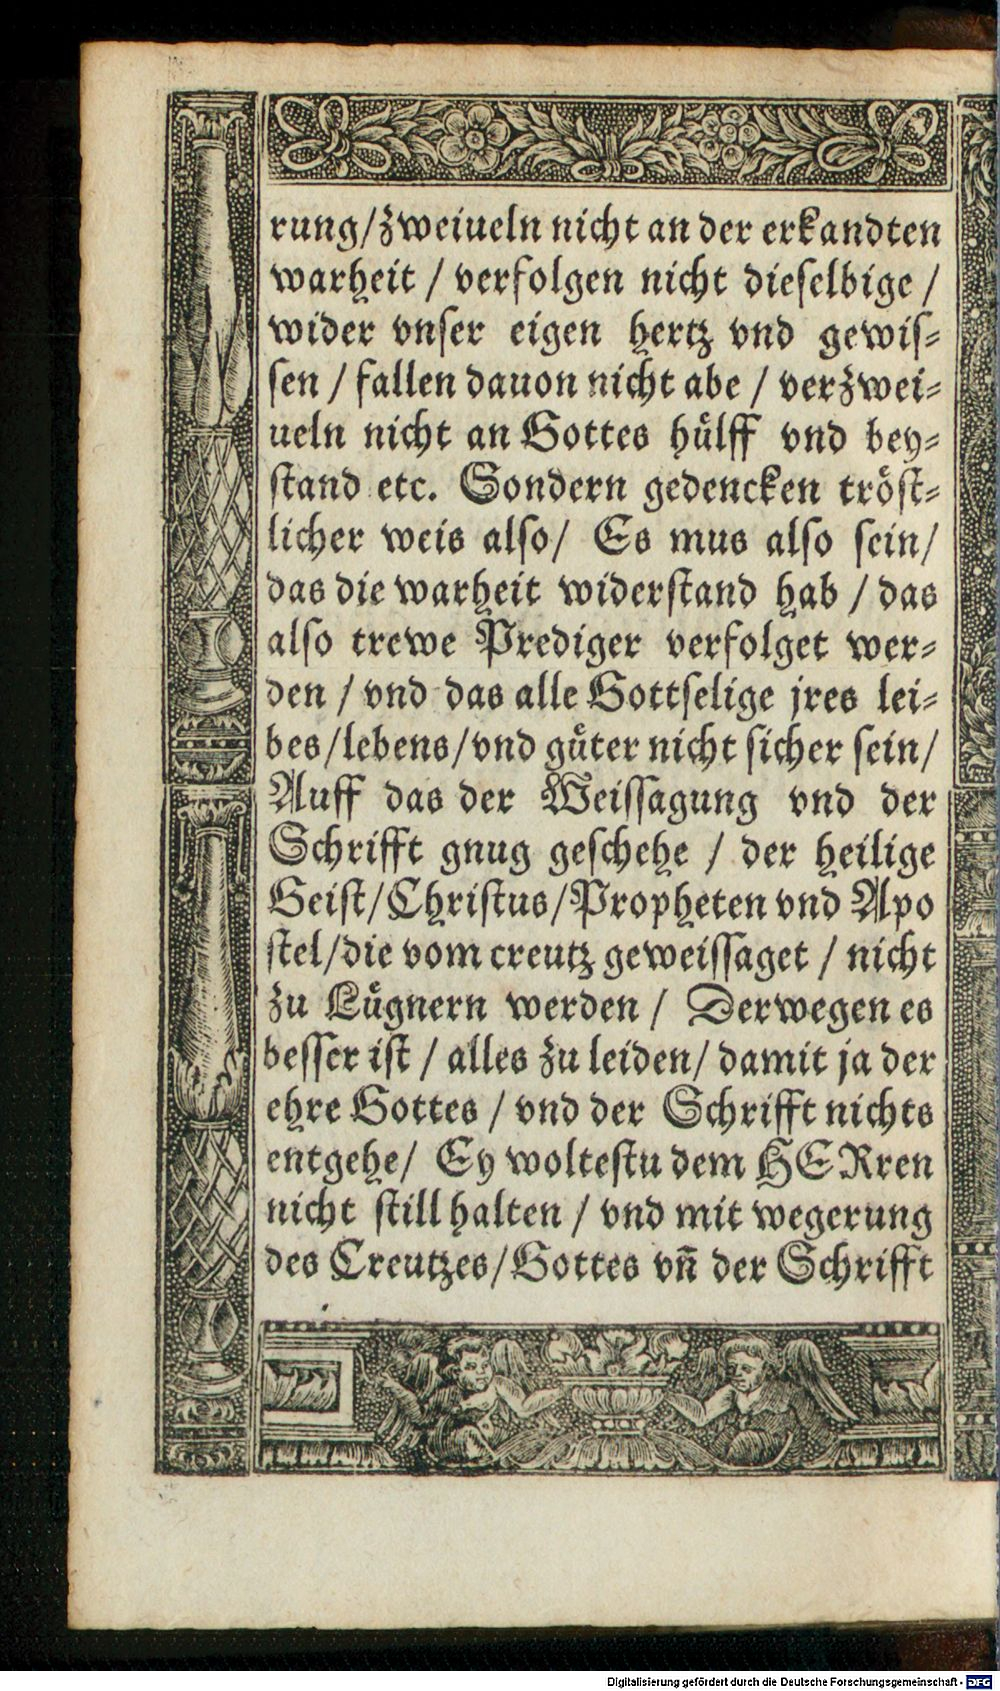 rung/zweiueln nicht an der erkandten
warheit / verfolgen nicht dieselbige /
wider vnser eigen hertz vnd gewis-
sen / fallen dauon nicht abe / verzwei-
ueln nicht an Gottes hülff vnd bey-
stand etc. Sondern gedencken tröst-
licher weis also/ Es mus also sein/
das die warheit widerstand hab / das
also trewe Prediger verfolget wer-
den / vnd das alle Gottselige jres lei-
bes/lebens/vnd güter nicht sicher sein/
Auff das der Weissagung vnd der
Schrifft gnug geschehe / der heilige
Geist/Christus/Propheten vnd Apo
stel/die vom creutz geweissaget / nicht
zu Lügnern werden / Derwegen es
besser ist / alles zu leiden/ damit ja der
ehre Gottes / vnd der Schrifft nichts
entgehe/ Ey woltestu dem HERren
nicht still halten / vnd mit wegerung
des Creutzes/Gottes vn̄ der Schrifft
Digitalisierung gefördert durch die Deutsche Forschungsgemeinschaft - DFG